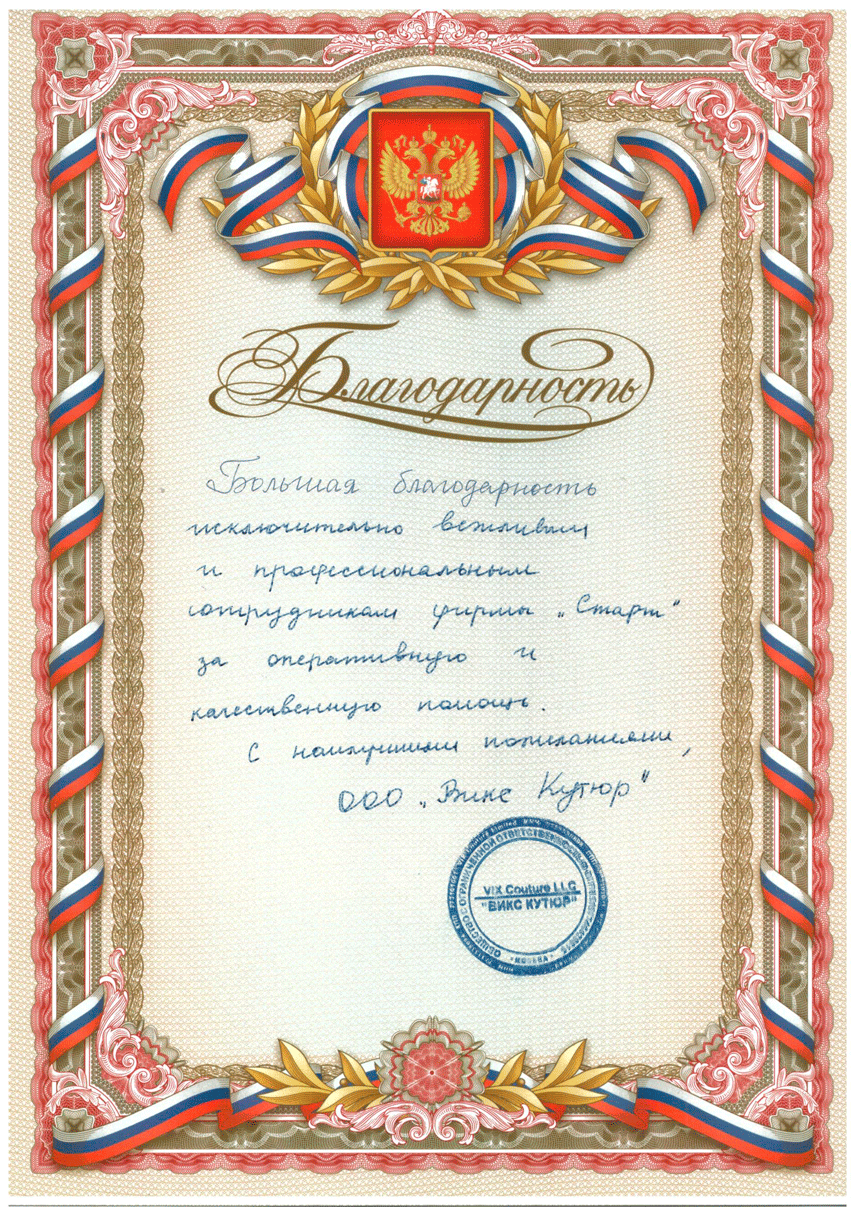 Благодарность
Большая благодарность
исключительно вежливым
и профессиональным
сотрудникам фирмы „Старт“
за оперативную и
качественную помощь.
С наилучшими пожеланиями,
ООО „Викс Кутюр“
ОБЩЕСТВО С ОГРАНИЧЕННОЙ ОТВЕТСТВЕННОСТЬЮ
VIX Couture LLC
"ВИКС КУТЮР"
МОСКВА